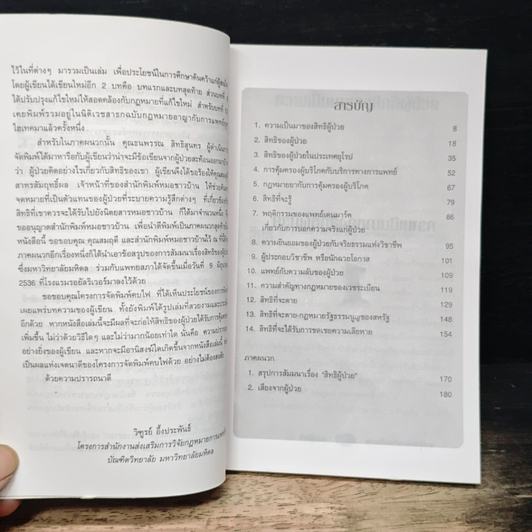 ไว้ในที่ต่างๆ มารวมเป็นเล่ม เพื่อประโยชน์ในการศึกษาค้นคว้าแก่ผู้สนใจ
โดยผู้เขียนได้เขียนใหม่อีก 2 บทคือ บทแรกและบทสุดท้าย ส่วนบทที่
ได้ปรับปรุงแก้ไขใหม่ให้สอดคล้องกับกฎหมายที่แก้ไขใหม่ สำหรับบท
เคยพิมพ์รวมอยู่ในนิติเวชสารกฉบับกฎหมายอาญากับการแพทย์
ไฮเทคมาแล้วครั้งหนึ่ง
สำหรับในภาคผนวกนั้น คุณธนพรรณ สิทธิสุนทร ผู้ดำเนิน
จัดพิมพ์ได้มาหารือกับผู้เขียนว่าน่าจะมีข้อเขียนจากผู้ป่วยสะท้อนออกมาบ้าง
ว่า ผู้ป่วยคิดอย่างไรเกี่ยวกับสิทธิของเขา ผู้เขียนจึงได้ขอร้องให้คุณ
สารสมฤทธิ์ผล เจ้าหน้าที่ของสำนักพิมพ์หมอชาวบ้าน ให้ช่วยค้น
จดหมายที่เป็นตัวแทนของผู้ป่วยที่ระบายความรู้สึกต่างๆ ที่เกี่ยวข้อง
สิทธิที่เขาควรจะได้รับไปยังนิตยสารหมอชาวบ้าน ก็ได้มาจำนวนหนึ่ง
ขออนุญาตสำนักพิมพ์หมอชาวบ้าน เพื่อนำตีพิมพ์เป็นภาคผนวก
หนังสือนี้ ขอขอบคุณ คุณสมฤดี และสำนักพิมพ์หมอชาวบ้านไว้ ณ ที่นี้
ภาคผนวกอีกเรื่องหนึ่งก็ได้นำเอาข้อสรุปของการสัมมนาเรื่องสิทธิของผู้ป่วย
ซึ่งมหาวิทยาลัยมหิดล ร่วมกับแพทยสภาได้จัดขึ้นเมื่อวันที่ 9
2536 ที่โรงแรมรอยัลริเวอร์มาลงไว้ด้วย
ขอขอบคุณโครงการจัดพิมพ์คบไฟ ที่ได้เห็นประโยชน์ของการ
เผยแพร่บทความของผู้เขียน ทั้งยังพิมพ์ได้รูปเล่มที่สวยงามและ
อีกด้วย หากหนังสือเล่มนี้จะมีผลที่จะก่อให้สิทธิของผู้ป่วยได้รับการ
เพิ่มขึ้น ไม่ว่าด้วยวิธีใดๆ และไม่ว่ามากน้อยเท่าใด นั่นคือ ความปรารถนา
อย่างยิ่งของผู้เขียน และหากจะมีอานิสงฆ์ใดเกิดขึ้นจากหนังสือเล่มนี้
เป็นผลแห่งเจตนาดีของโครงการจัดพิมพ์คบไฟด้วย อย่างไม่ต้องสงสัย
ด้วยความปรารถนาดี
วิฑูรย์ อึ้งประพันธ์
โครงการสำนักงานส่งเสริมการวิจัยกฎหมายการแพทย์
บัณฑิตวิทยาลัย มหาวิทยาลัยมหิดล
สารบัญ
1. ความเป็นมาของสิทธิผู้ป่วย 8
2. สิทธิของผู้ป่วย 18
3. สิทธิของผู้ป่วยในประเทศยุโรป 35
4. การคุ้มครองผู้บริโภคกับบริการทางการแพทย์ 52
5. กฎหมายยากับการคุ้มครองผู้บริโภค 67
6. สิทธิที่จะรู้ 79
7. พฤติกรรมของแพทย์เดนมาร์ค 86
เกี่ยวกับการบอกความจริงแก่ผู้ป่วย
8. ความยินยอมของผู้ป่วยกับจริยธรรมแห่งวิชาชีพ 95
9. ผู้ประกอบวิชาชีพ หรือนักฉวยโอกาส 101
10. แพทย์กับความลับของผู้ป่วย 109
11. ความสำคัญทางกฎหมายของเวชระเบียน 119
12. สิทธิที่จะตาย 129
13. สิทธิที่จะตาย-กฎหมายรัฐธรรมนูญของสหรัฐ 148
14. สิทธิที่จะได้รับการชดเชยความเสียหาย 154
ภาคผนวก
1. สรุปการสัมมนาเรื่อง "สิทธิผู้ป่วย" 170
2. เสียงจากผู้ป่วย 180